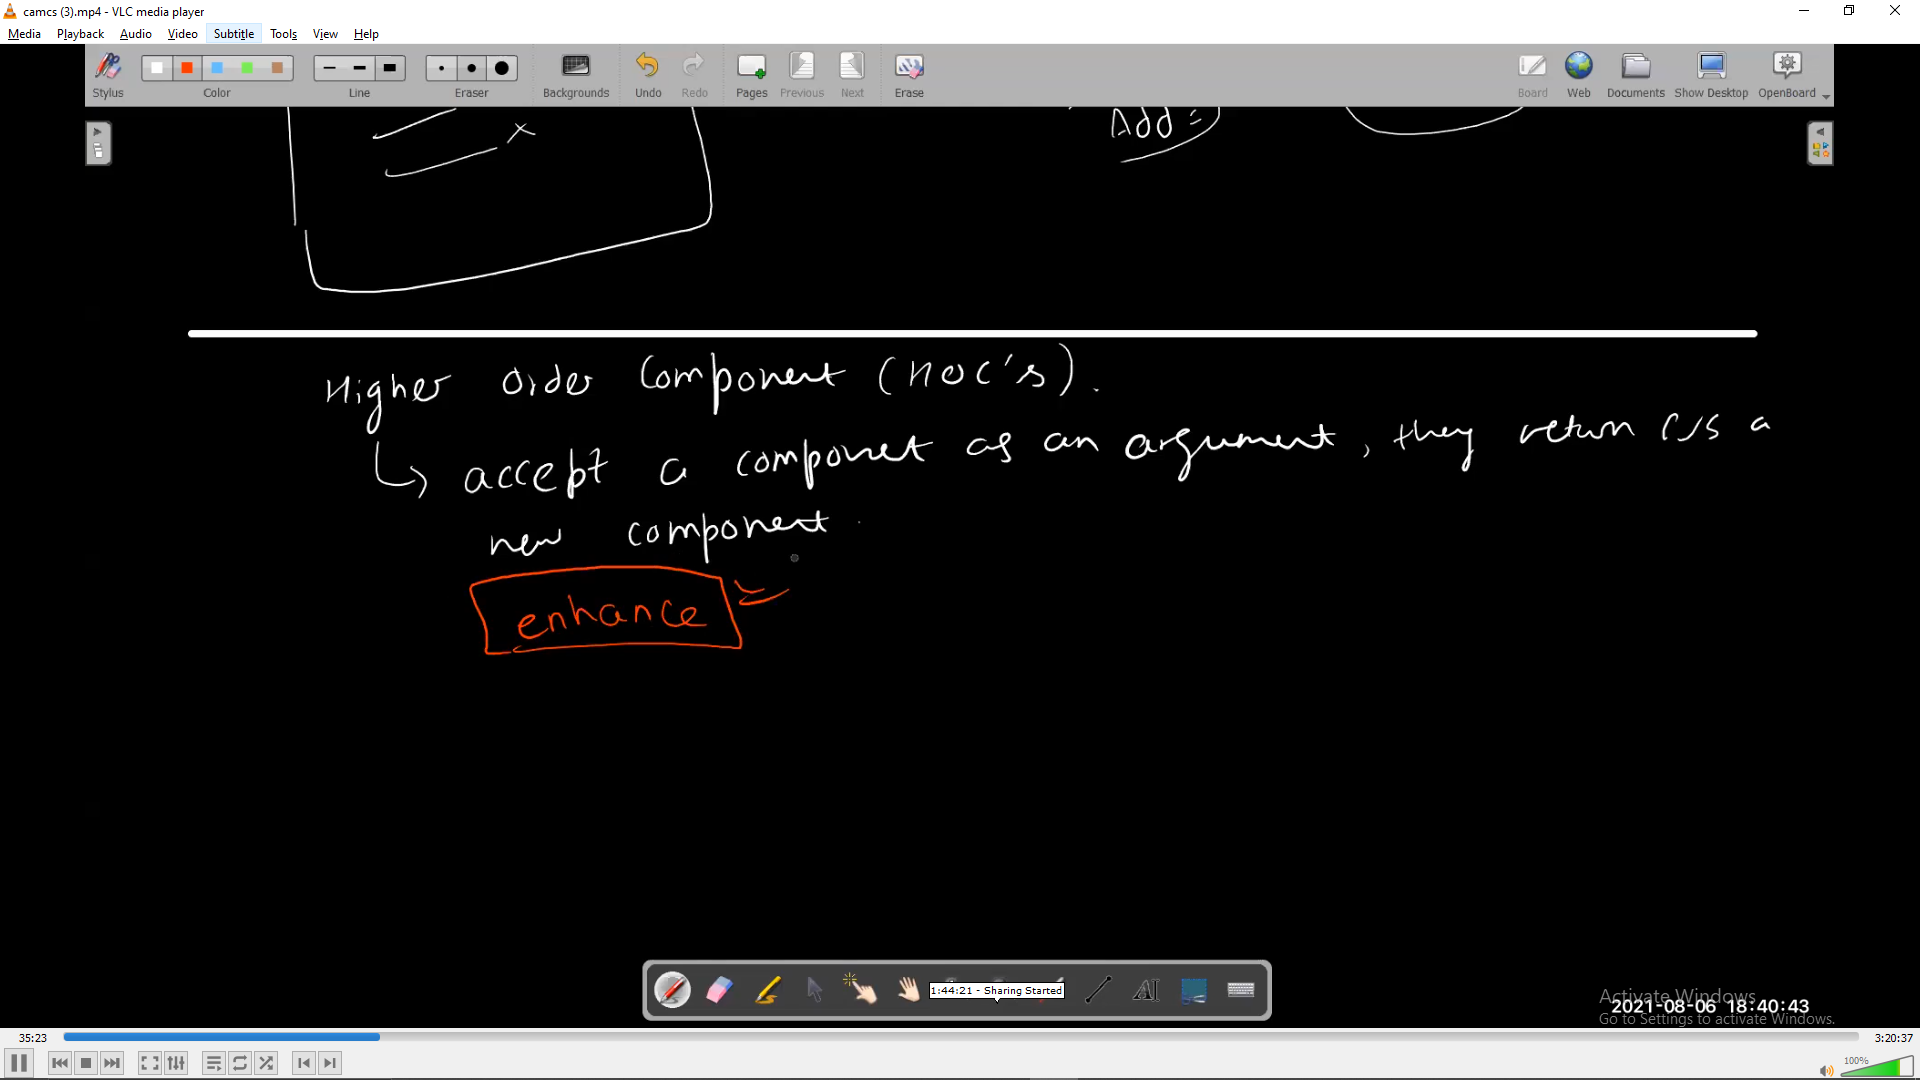 camcs (3).mp4 - VLC media player
Media Playback Audio Video Subtitle Tools View Help
Stylus Color Line Eraser Backgrounds Undo Redo Pages Previous Next Erase Board Web Documents Show Desktop OpenBoard
Add =
x
Higher Order Component (HOC's).
↳ accept a componet as an argument, they return a
new component.
enhance
1:44:21 - Sharing Started
Activate Windows
2021-08-06 18:40:43
Go to Settings to activate Windows.
35:23 3:20:37
100%